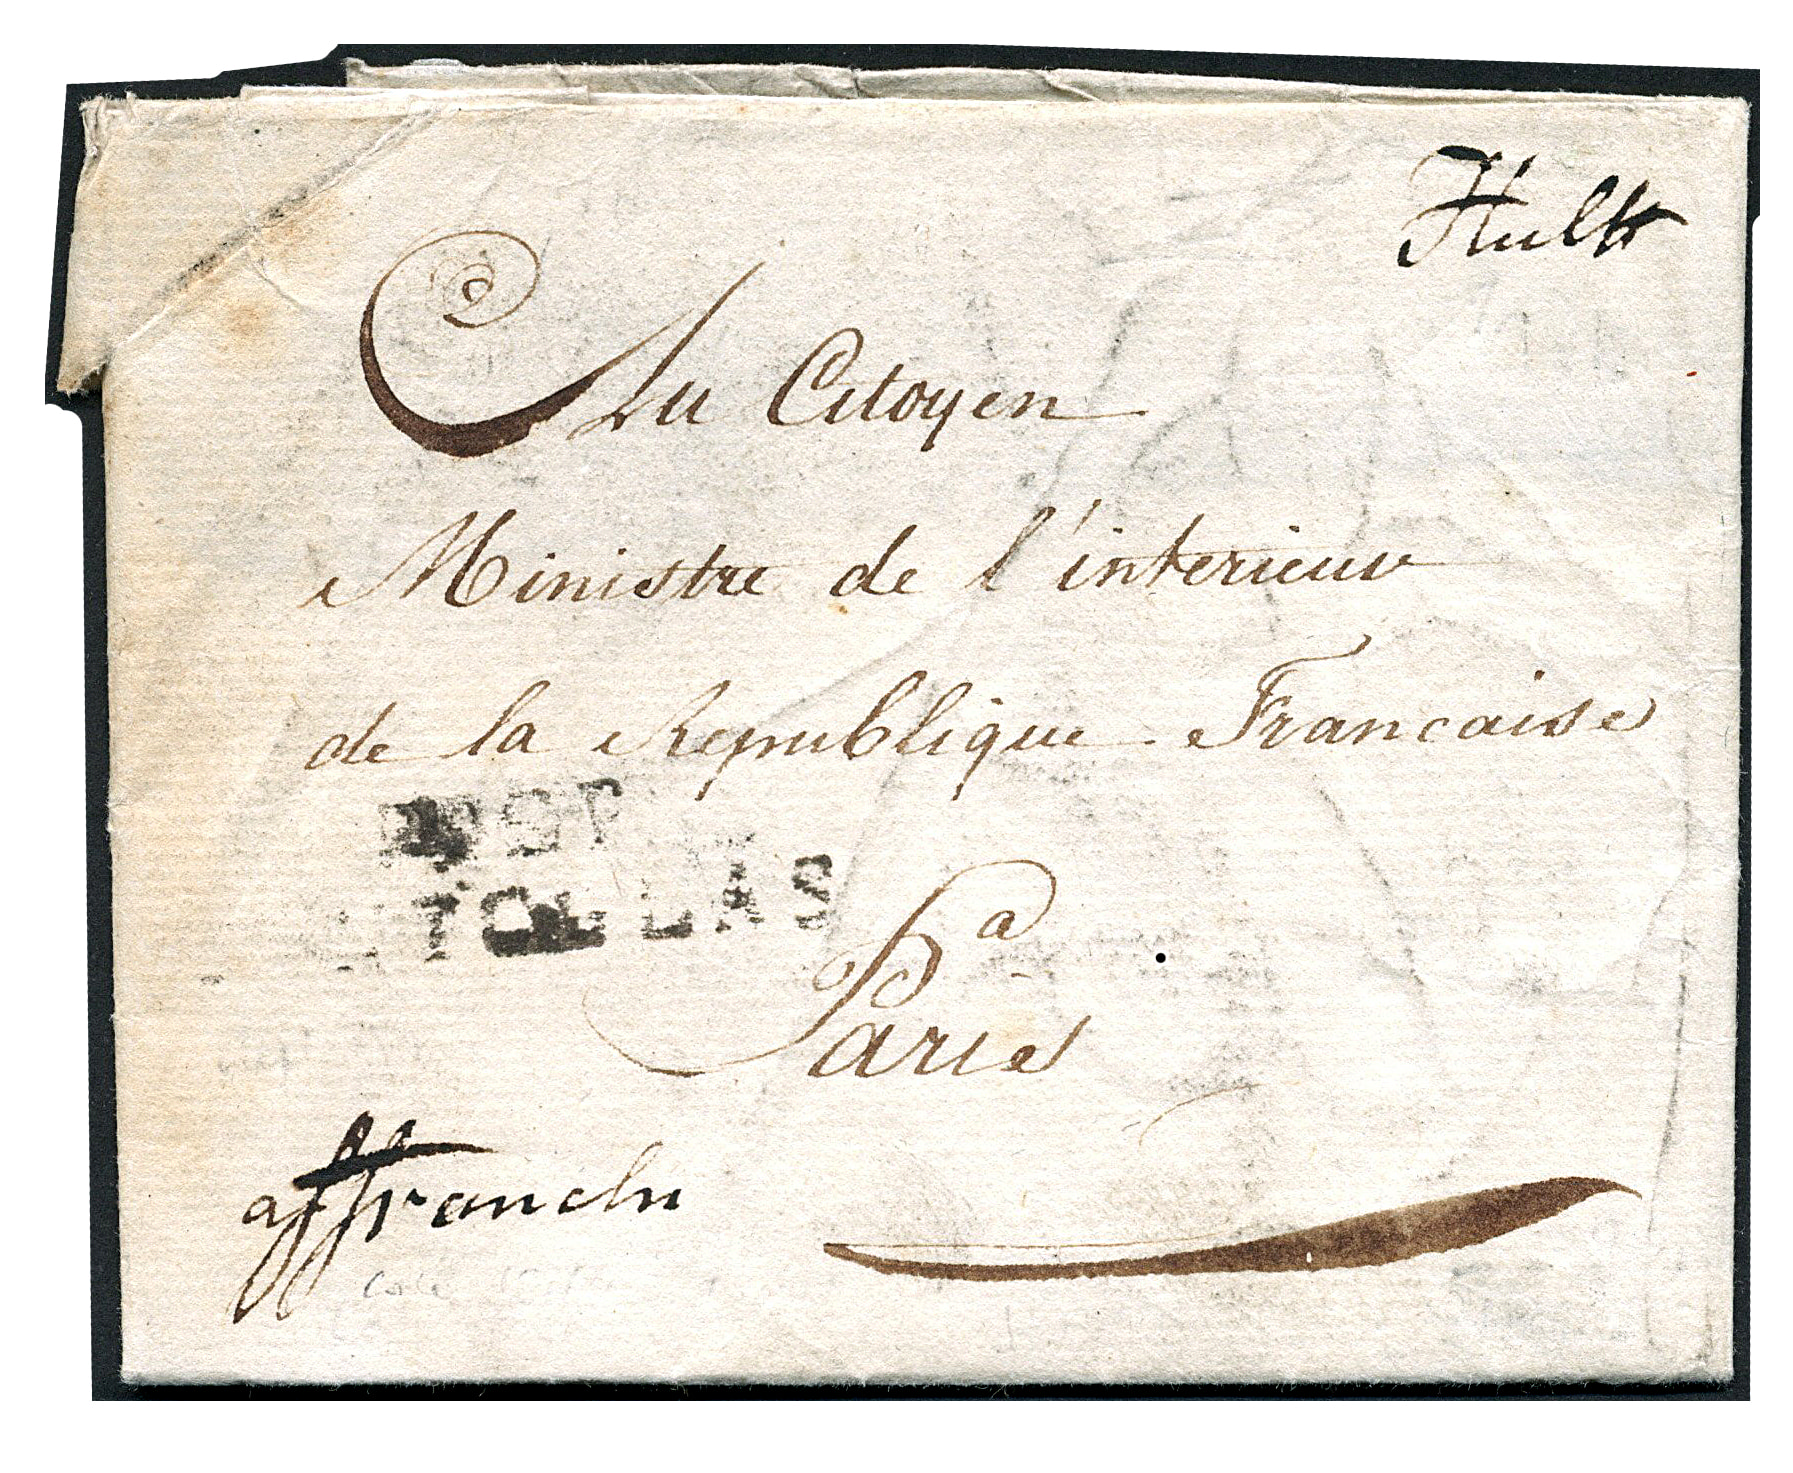 Hulk
Au Citoyen
Ministre de l'interieur
de la Republique Francaise
a
Paris
affranchi